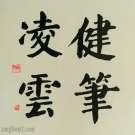 健筆
凌雲